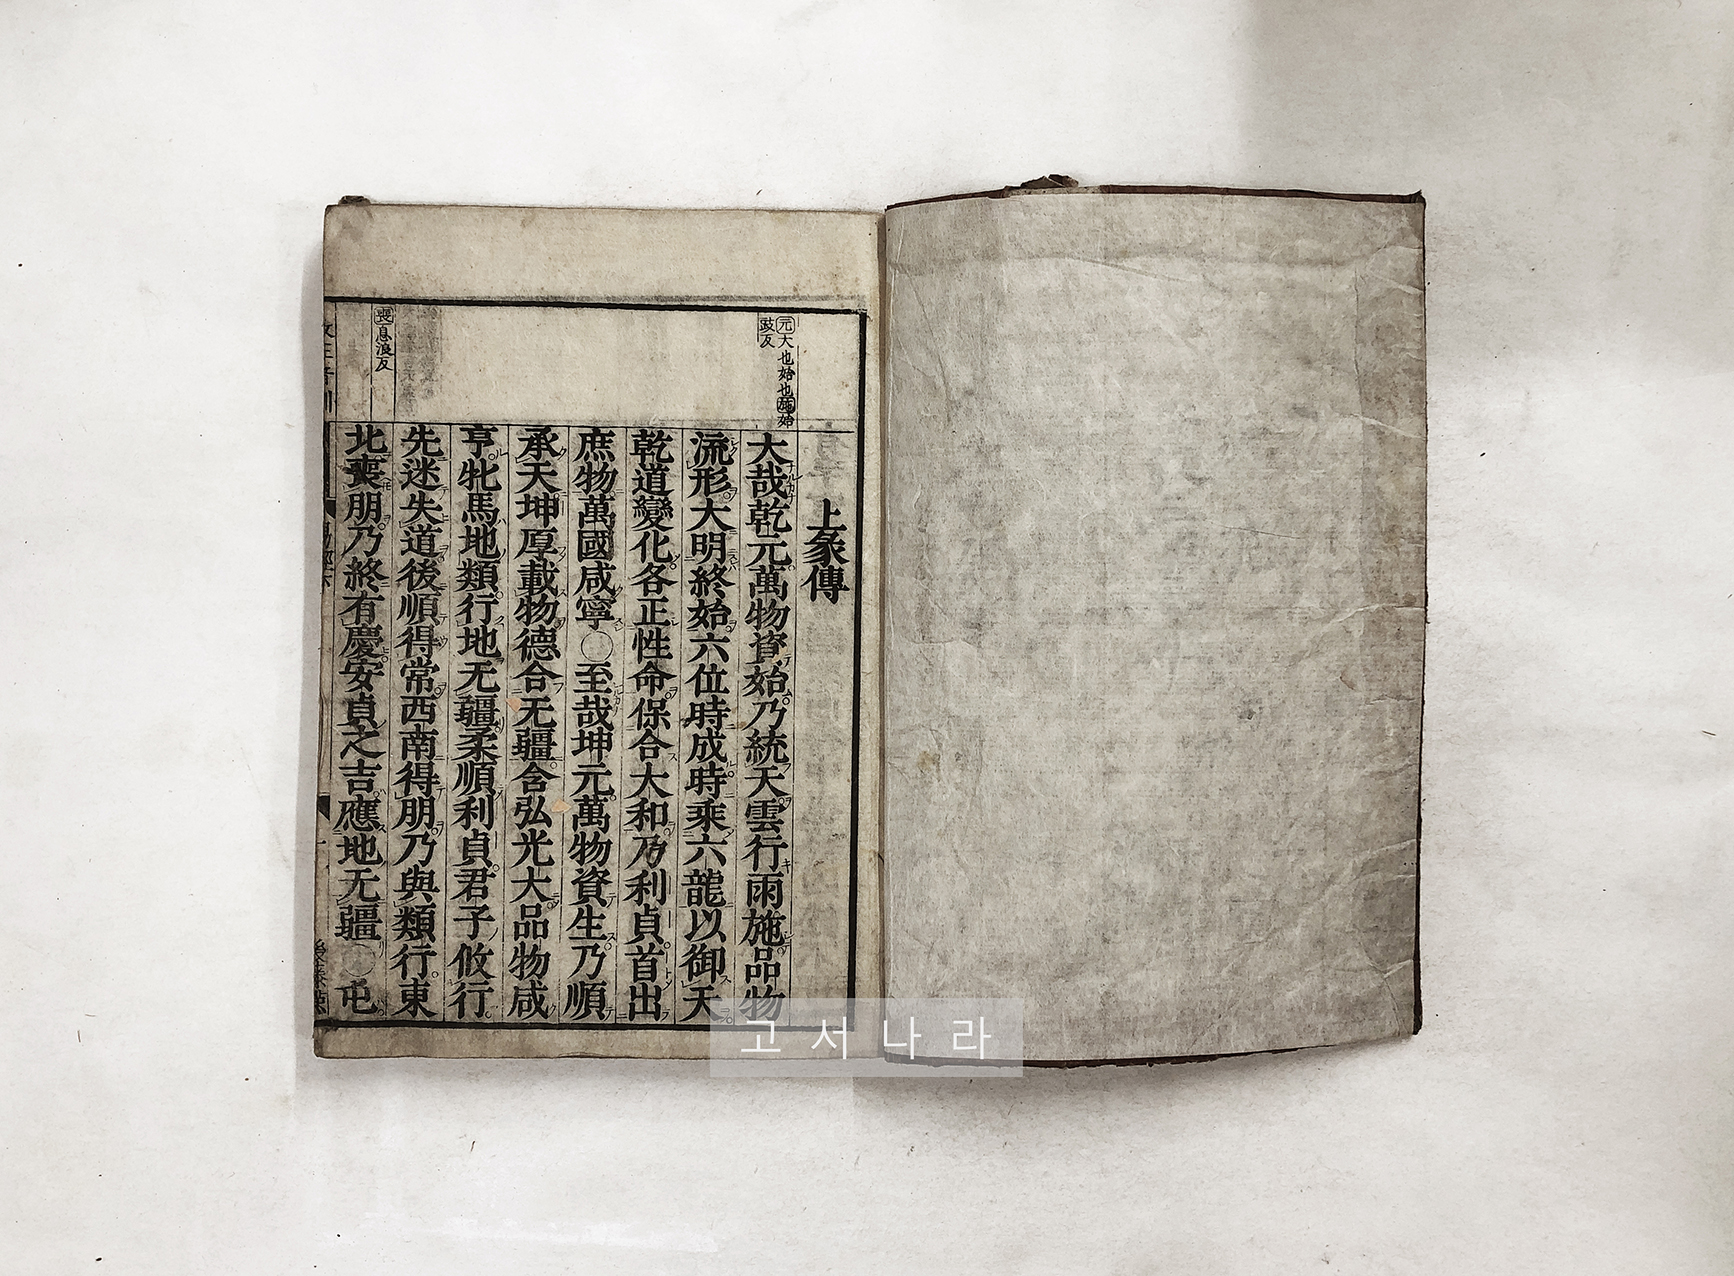 上彖傳
大哉乾元萬物資始乃統天雲行雨施品物
流形大明終始六位時成時乘六龍以御天
乾道變化各正性命保合大和乃利貞首出
庶物萬國咸寧○至哉坤元萬物資生乃順
承天坤厚載物德合无疆含弘光大品物咸
亨牝馬地類行地无疆柔順利貞君子攸行
先迷失道後順得常西南得朋乃與類行東
北喪朋乃終有慶安貞之吉應地无疆○屯
元大也始也施始
豉反
喪息浪反
고서나라